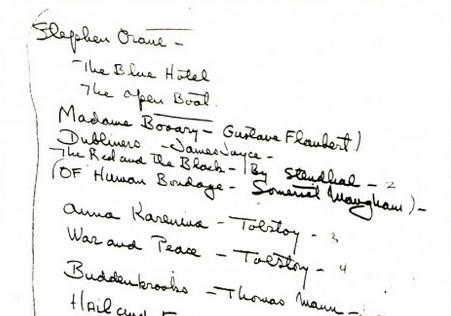 Stephen Crane -
The Blue Hotel
The Open Boat.
Madame Bovary - Gustave Flaubert)
Dubliners - James Joyce -
The Red and the Black - (By Stendhal - 2
(OF Human Bondage - Somerset Maugham) -
Anna Karenina - Tolstoy - 3
War and Peace - Tolstoy - 4
Buddenbrooks - Thomas Mann -
Hail and